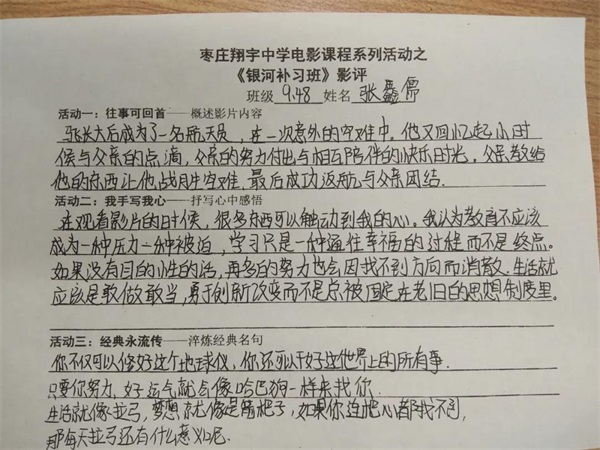 枣庄翔宇中学电影课程系列活动之
《银河补习班》影评
班级 9.48 姓名 张鑫儒
活动一：往事可回首——概述影片内容
马飞长大后成为了一名航天员，在一次意外的空难中，他又回忆起小时
候与父亲的点滴，父亲的努力付出与相互陪伴的快乐时光，父亲教给
他的东西让他战胜空难.最后成功返航与父亲团结.
活动二：我手写我心——抒写心中感悟
在观看影片的时候，很多东西可以触动到我的心，我认为教育不应该
成为一种压力一种被迫，学习只是一种通往幸福的过程而不是终点。
如果没有目的性的活，再多的努力也会因找不到方向而消散.生活就
应该是敢做敢当，勇于创新改变而不是总被固定在老旧的思想制度里。
活动三：经典永流传——淬炼经典名句
你不仅可以修好这个地球仪，你还可以干好这世界上的所有事.
只要你努力，好运气就会像哈巴狗一样来找你.
生活就像拉弓，梦想就像是箭靶子，如果你连靶心都找不到，
那每天拉弓还有什么意义呢.